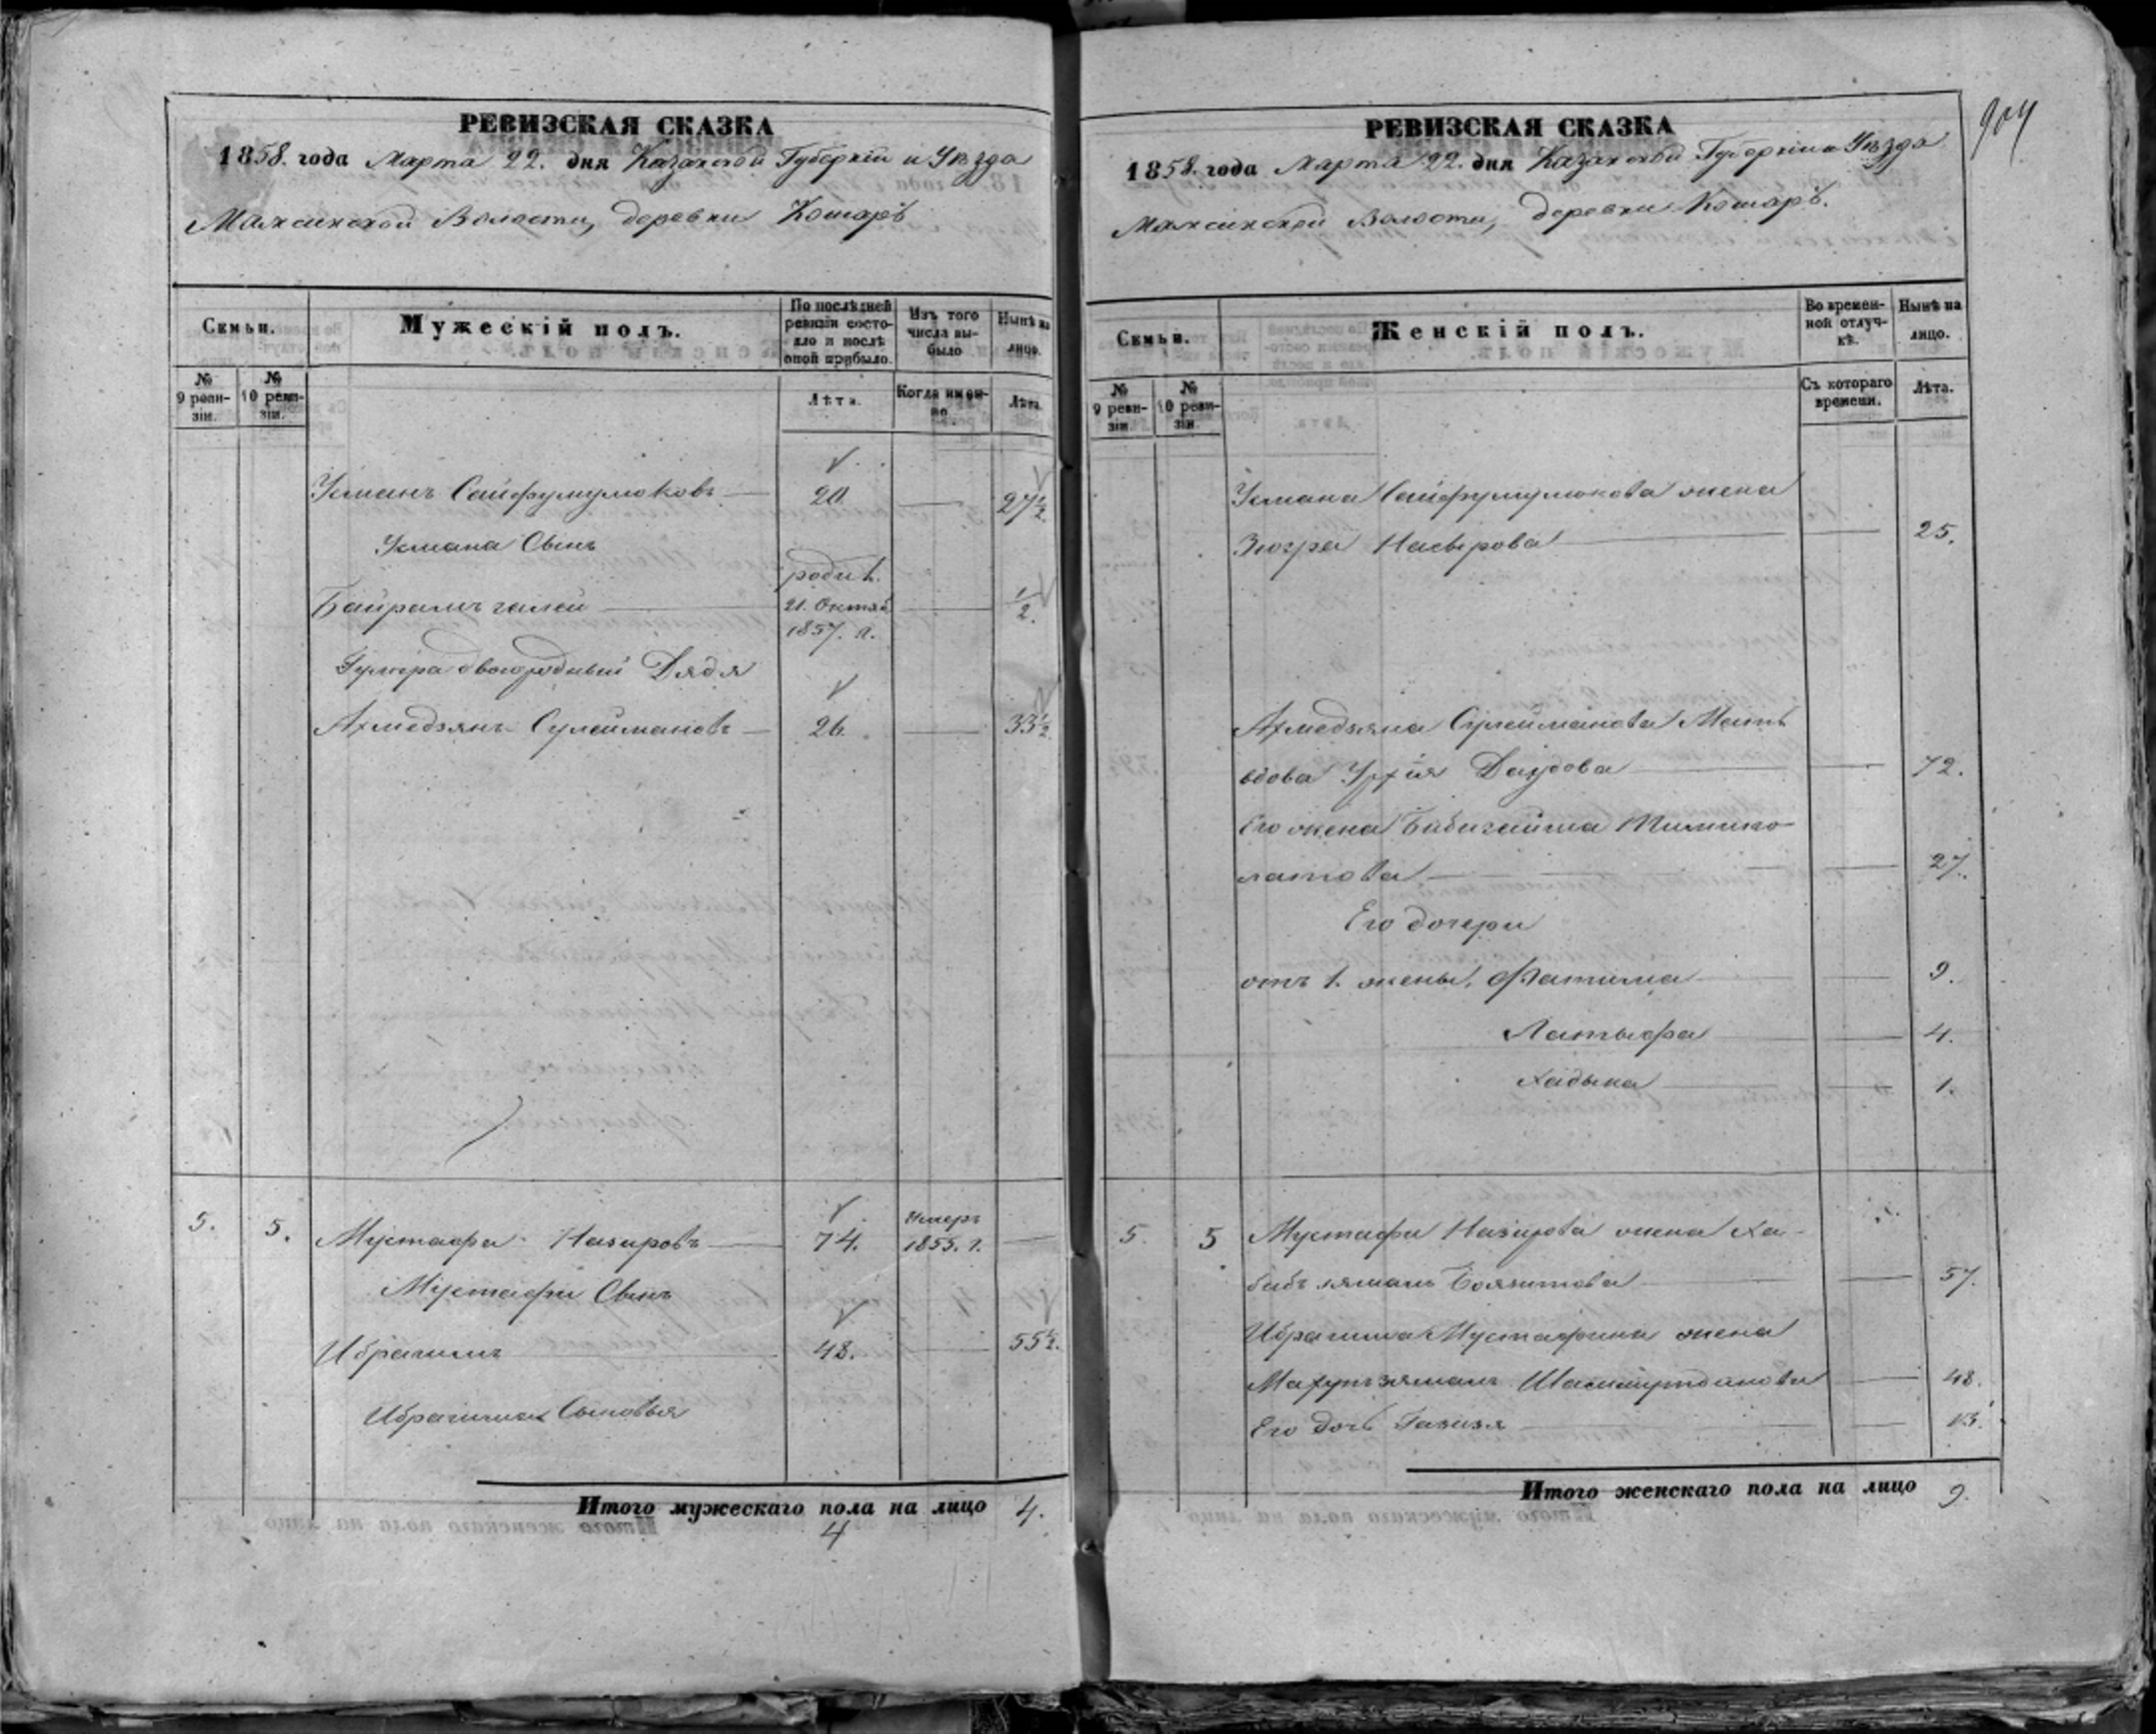 904
РЕВИЗСКАЯ СКАЗКА
1858. года Марта 22. дня Казанской Губерніи и Уѣзда
Мамсинской Волости, деревни Кошаръ
Семьи.
Мужескій полъ.
По послѣдней ревизіи состояло и послѣ оной прибыло.
Изъ того числа выбыло
Нынѣ на лицо.
№ 9 ревизіи.
№ 10 ревизіи.
Лѣта.
Когда именно.
Лѣта.
Усманъ Сайфумулюковъ 20 27 1/2.
Усмана Сынъ
Байрамъ галей родил. 21. Октяб. 1857. г. 1/2.
двоюродный Дядя
Ахмедзянъ Сулеймановъ 26. 33 1/2.
5. 5. Мустафа Назировъ 74. Умеръ 1855. г.
Мустафы Сынъ
Ибрагимъ 48. 55 1/2.
Ибрагима Сыновья
Итого мужескаго пола на лицо 4.
4
РЕВИЗСКАЯ СКАЗКА
1858. года Марта 22. дня Казанской Губерніи и Уѣзда
Мамсинской Волости, деревни Кошаръ.
Семьи.
Женскій полъ.
Во временной отлучкѣ.
Нынѣ на лицо.
№ 9 ревизіи.
№ 10 ревизіи.
Съ котораго времени.
Лѣта.
Усмана Сайфумулюкова жена
Зюгра Насырова 25.
Ахмедзяна Сулейманова Мать
вдова Даудова 72.
Его жена Бибигайша Тимико-
латова 27.
Его дочери
отъ 1. жены, Фатима 9.
Латыфа 4.
Хадыча 1.
5. 5 Мустафы Назирова жена Ха-
бибъ Баязитова 57.
Ибрагима Мустафина жена
48.
Его дочь Газизя 13.
Итого женскаго пола на лицо 9.